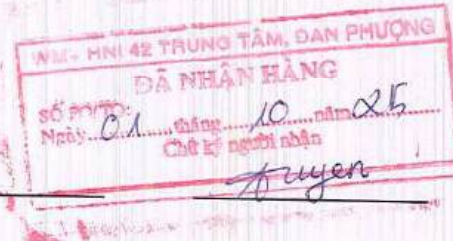 WM - HNI 42 TRUNG TÂM, ĐAN PHƯỢNG
ĐÃ NHẬN HÀNG
SỐ PO/TO:
Ngày 01 tháng 10 năm 25
Chữ ký người nhận
Tuyen